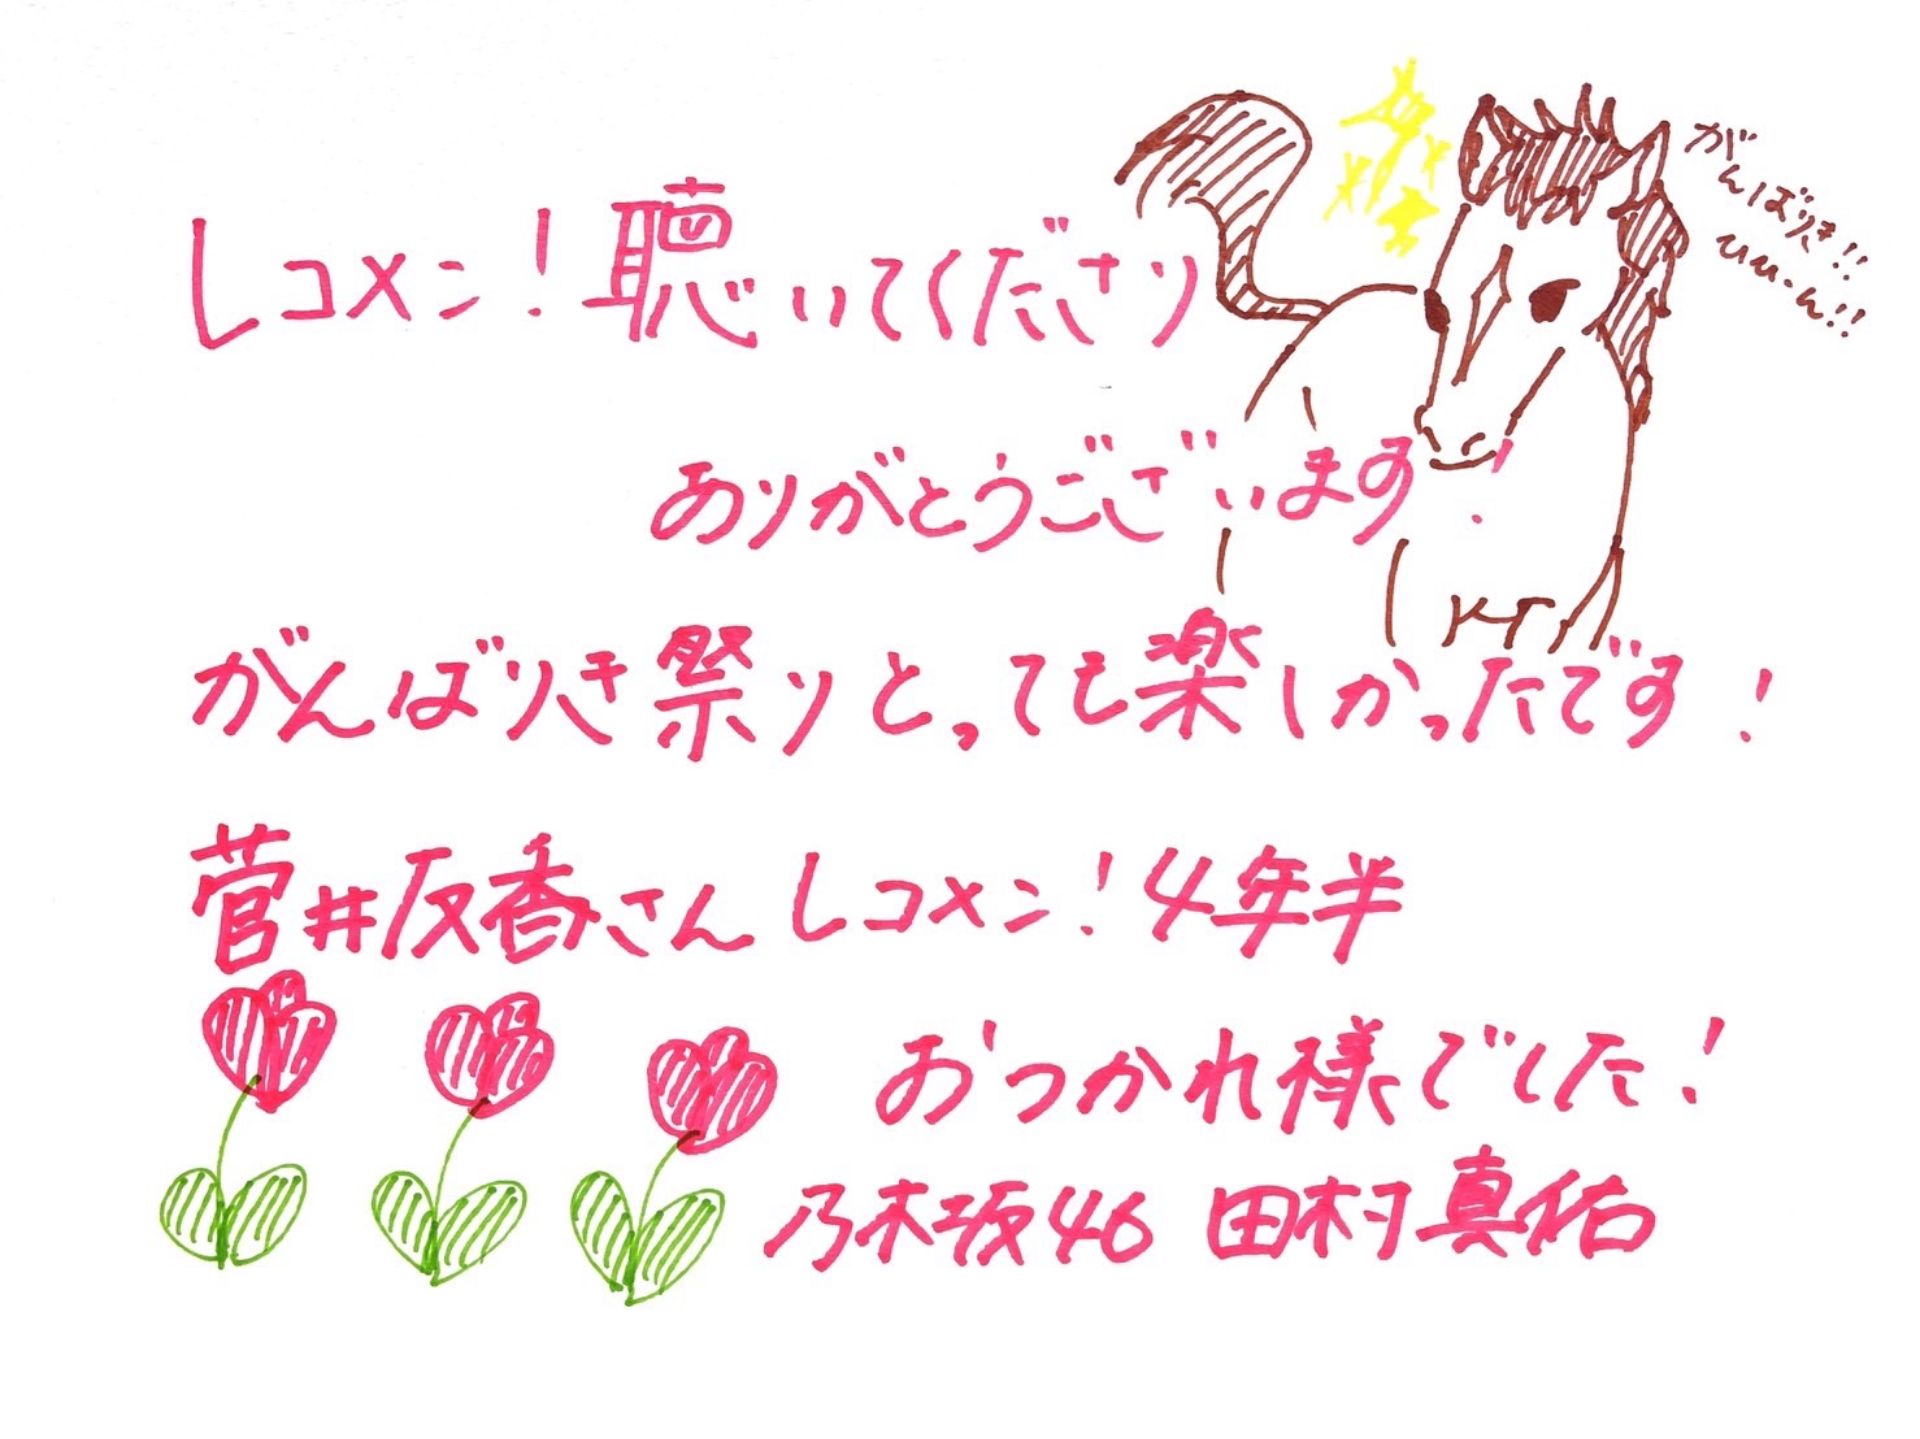 レコメン!聴いてくださり
ありがとうございます!
がんばりき!!
ひひーん!!
がんばりき祭りとっても楽しかったです!
菅井友香さんレコメン!4年半
おつかれ様でした!
乃木坂46 田村真佑